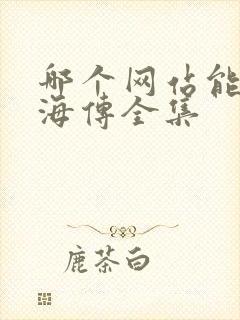 哪个网站能
海傅全集
鹿茶白